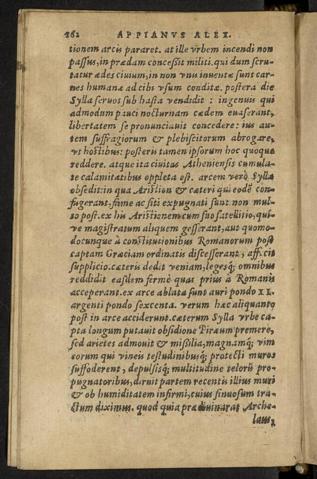 262 APPIANVS ALEX.
tionem arcis pararet. at ille vrbem incendi non
passus, in prædam concessit militi. qui dum scru-
tatur ædes ciuium, in non vnis inuentæ sunt car-
nes humanæ ad cibi vsum conditæ. postera die
Sylla seruos sub hasta vendidit : ingenuis qui
admodum pauci nocturnam cædem euaserant,
libertatem se pronunciauit concedere: ius au-
tem suffragiorum & plebiscitorum abrogare,
vt hostibus: posteris tamen ipsorum hoc quoque
reddere. atque ita ciuitas Atheniensis cumula-
te calamitatibus oppleta est. arcem verò Sylla
obsedit: in qua Aristion & cæteri qui eodē con-
fugerant, fame ac siti expugnati sunt non mul-
to post. ex his Aristionem cum suo satellitio, qui-
ve magistratum aliquem gesserant, aut quomo-
docunque à constitutionibus Romanorum post
captam Græciam ordinatis discesserant, affecit
supplicio. cæteris dedit veniam, legesq; omnibus
reddidit easdem fermè quas prius à Romanis
acceperant. ex arce ablata sunt auri pondo XL.
argenti pondo sexcenta. verum hæc aliquanto
post in arce acciderunt. cæterum Sylla vrbe ca-
pta longum putauit obsidione Piræum premere,
sed arietes admouit & missilia, magnamq; vim
eorum qui vineis testudinibusq; protecti muros
suffoderent, depulsisq; multitudine telorū pro-
pugnatoribus, diruit partem recentis illius muri
& ob humiditatem infirmi, cuius sinuosum tra-
ctum diximus. quod quia prædiuinarat Arche-
laus,